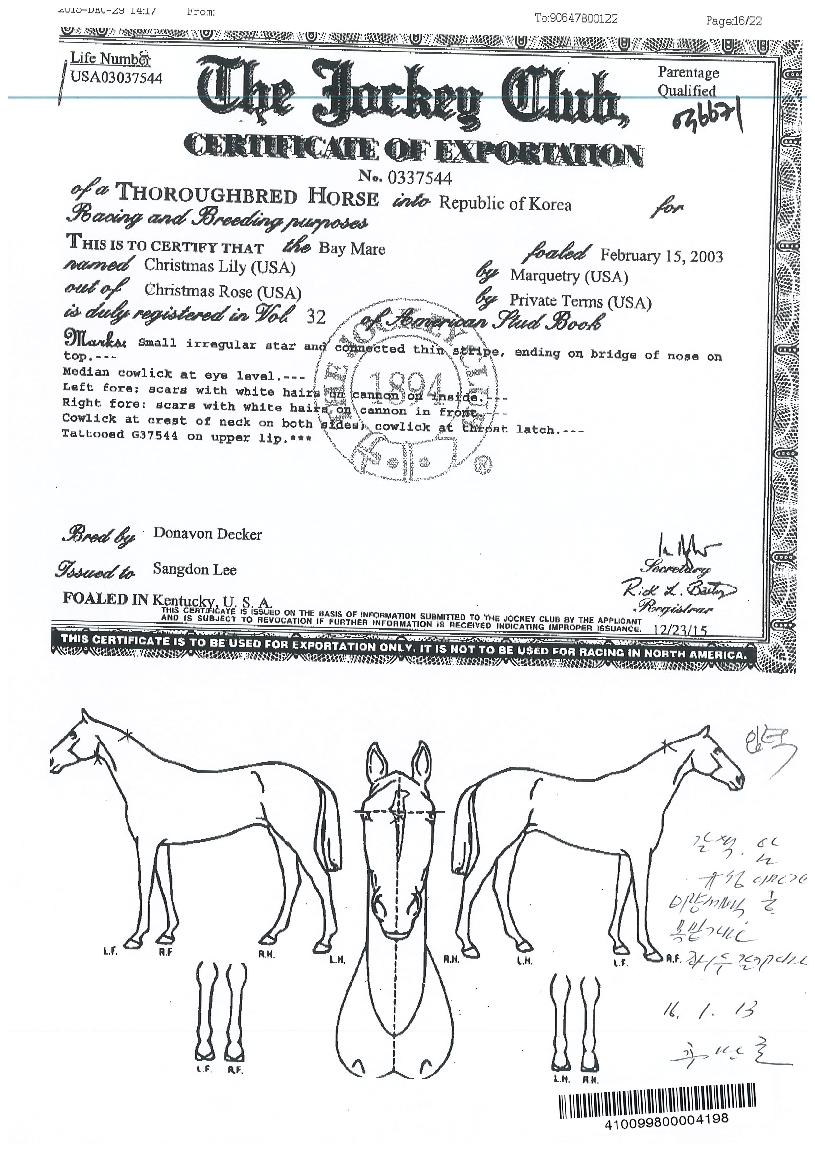 2015-DEC-29 14:17 From: To:90647800122 Page:16/22
Life Number
USA03037544
The Jockey Club,
Parentage
Qualified
036671
CERTIFICATE OF EXPORTATION
No. 0337544
of a THOROUGHBRED HORSE into Republic of Korea for
Racing and Breeding purposes
THIS IS TO CERTIFY THAT the Bay Mare foaled February 15, 2003
named Christmas Lily (USA) by Marquetry (USA)
out of Christmas Rose (USA) by Private Terms (USA)
is duly registered in Vol. 32 of American Stud Book
Marks: Small irregular star and connected thin stripe, ending on bridge of nose on
top.---
Median cowlick at eye level.---
Left fore: scars with white hairs on cannon on inside.---
Right fore: scars with white hairs on cannon in front.---
Cowlick at crest of neck on both sides; cowlick at throat latch.---
Tattooed G37544 on upper lip.***
THE JOCKEY CLUB
1894
®
Bred by Donavon Decker
Issued to Sangdon Lee
Secretary
Registrar
FOALED IN Kentucky, U. S. A.
THIS CERTIFICATE IS ISSUED ON THE BASIS OF INFORMATION SUBMITTED TO THE JOCKEY CLUB BY THE APPLICANT
AND IS SUBJECT TO REVOCATION IF FURTHER INFORMATION IS RECEIVED INDICATING IMPROPER ISSUANCE. 12/23/15
THIS CERTIFICATE IS TO BE USED FOR EXPORTATION ONLY. IT IS NOT TO BE USED FOR RACING IN NORTH AMERICA.
L.F. R.F R.H. L.H. R.H. L.H. L.F. R.F.
L.F. R.F. L.H. R.H.
16. 1. 13
410099800004198